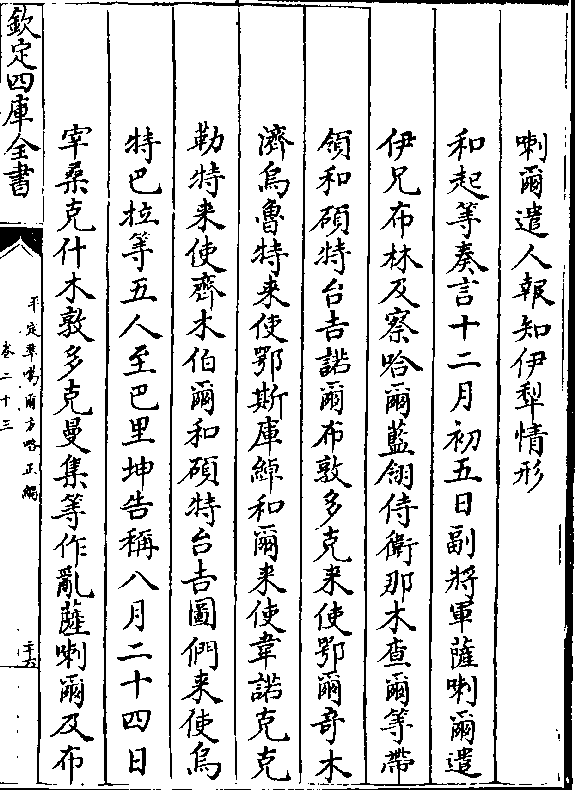 喇爾遣人報知伊犂情形
和起等奏言十二月初五日副將軍薩喇爾遣
伊兄布林及察哈爾藍翎侍衛那木查爾等帶
領和碩特台吉諾爾布敦多克來使鄂爾奇木
濟烏魯特來使鄂斯庫綽和爾來使韋諾克克
勒特來使齊木伯爾和碩特台吉圖們來使烏
特巴拉等五人至巴里坤告稱八月二十四日
宰桑克什木敦多克曼集等作亂薩喇爾及布
欽定四庫全書
平定準噶爾方略正編
卷二十三
二十六